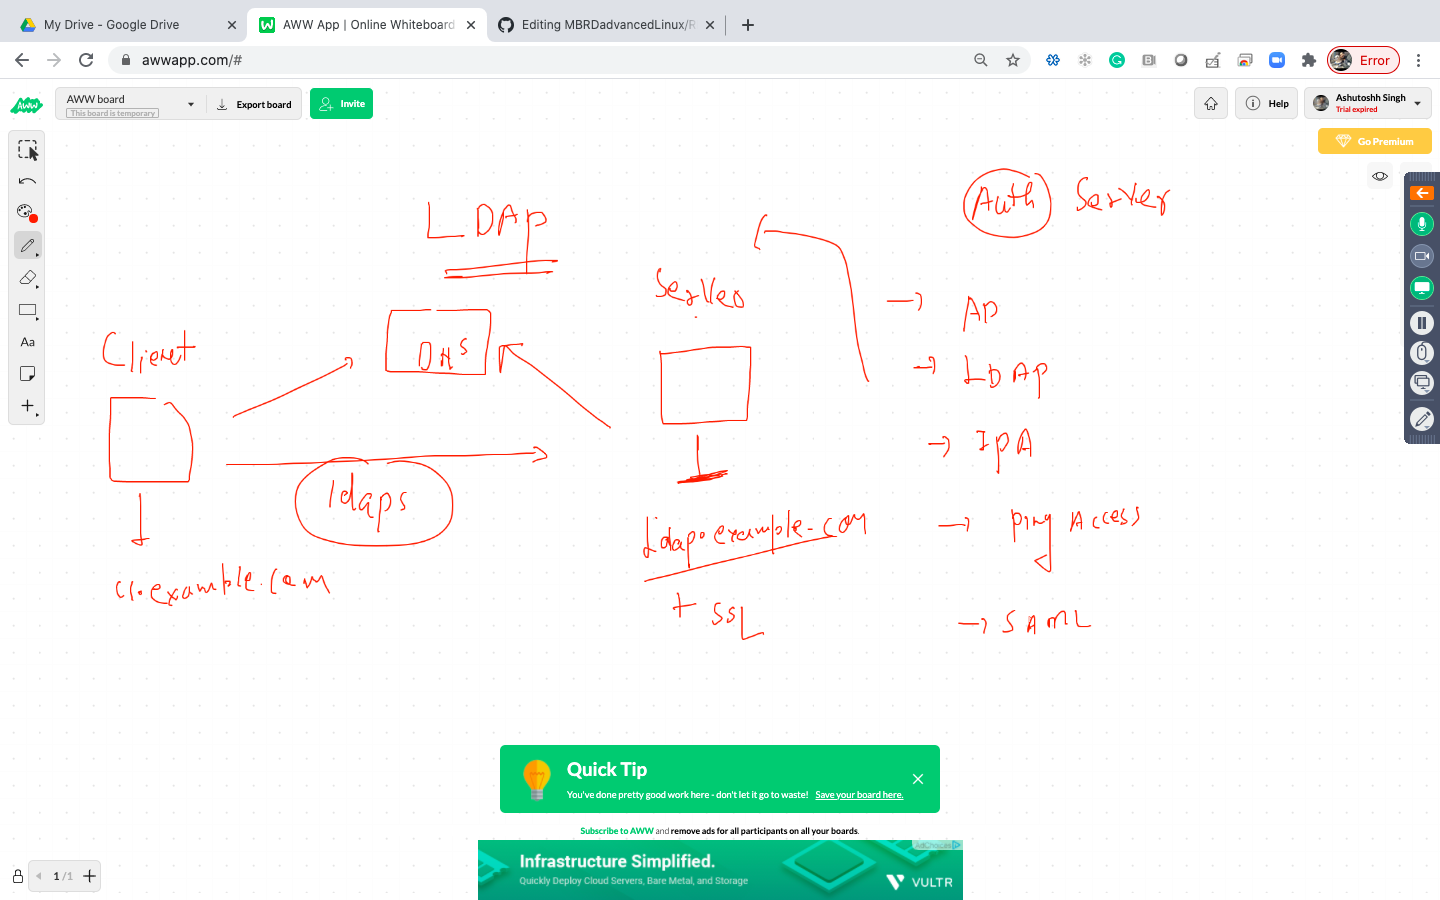 My Drive - Google Drive
AWW App | Online Whiteboard
Editing MBRDadvancedLinux/R
awwapp.com/#
Error
AWW
AWW board
This board is temporary
Export board
Invite
Help
Ashutoshh Singh
Trial expired
Go Premium
Aa
Auth Server
LDAP
Server
AD
DNS
Client
LDAP
IPA
ldaps
Ping Access
Ldap.example.com
c1.example.com
+ SSL
SAML
Quick Tip
You've done pretty good work here - don't let it go to waste! Save your board here.
Subscribe to AWW and remove ads for all participants on all your boards.
AdChoices
Infrastructure Simplified.
Quickly Deploy Cloud Servers, Bare Metal, and Storage
VULTR
1 /1